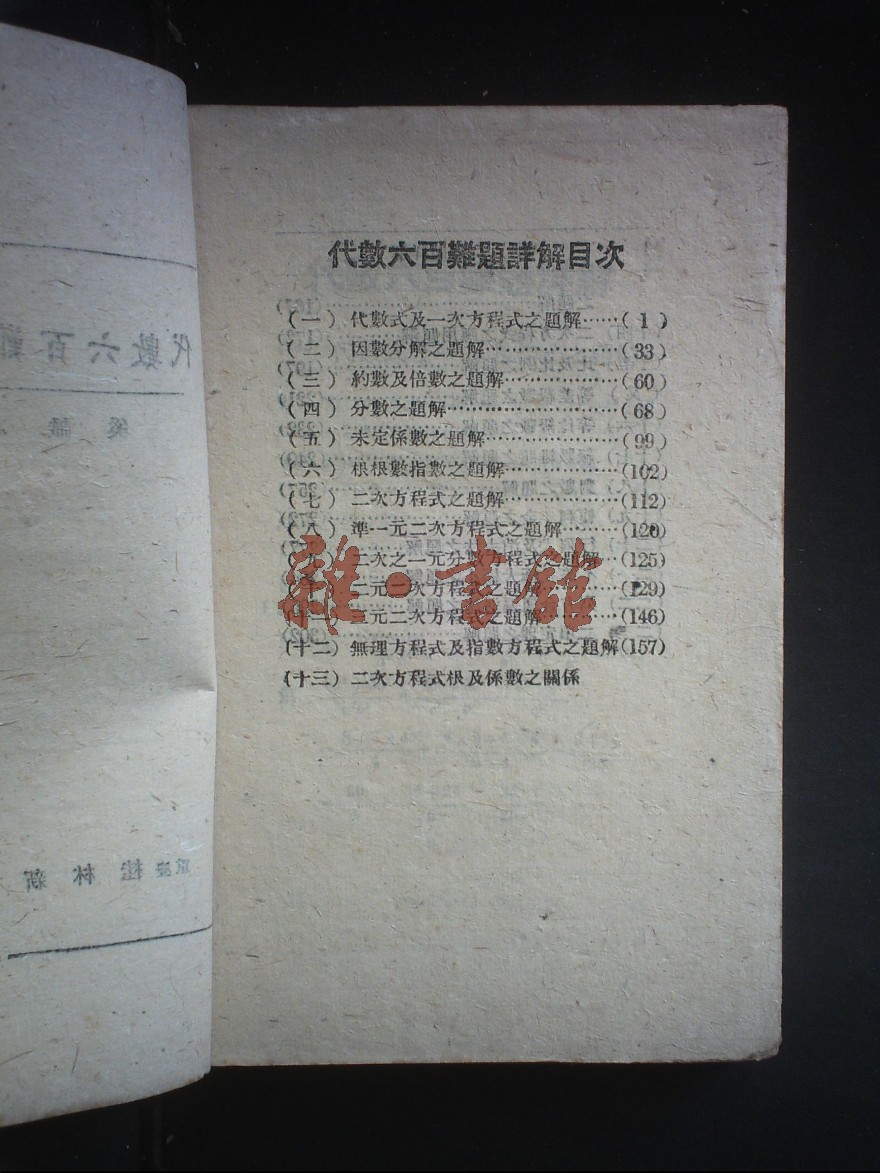 代數六百難題詳解目次
(一) 代數式及一次方程式之題解……(1)
(二) 因數分解之題解………………(33)
(三) 約數及倍數之題解……………(60)
(四) 分數之題解……………………(68)
(五) 未定係數之題解………………(99)
(六) 根根數指數之題解……………(102)
(七) 二次方程式之題解……………(112)
(八) 準一元二次方程式之題解………(120)
(九) 二次之一元分數方程式之題解…(125)
(十) 二元二次方程式之題解…………(129)
(十一) 三元二次方程式之題解………(146)
(十二) 無理方程式及指數方程式之題解(157)
(十三) 二次方程式根及係數之關係
雜·書舘
代數六百難
桂林新